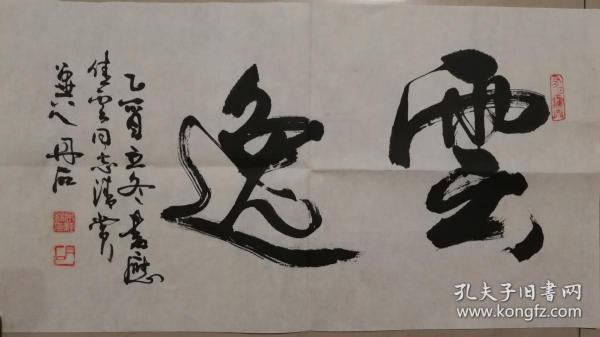 雲逸
乙酉立冬書應
佳雲同志清賞
丹石
孔夫子旧書网
www.kongfz.com